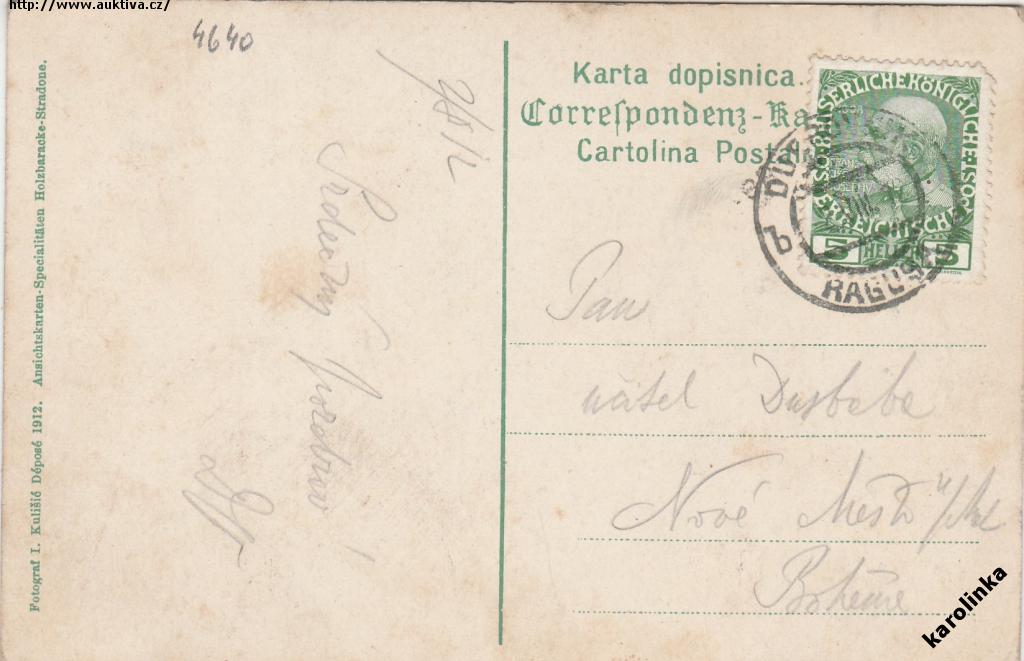 http://www.auktiva.cz/
4640
Fotograf I. Kulišić Déposé 1912. Ansichtskarten-Specialitäten Holzbaracke-Stradone.
Srdečný pozdrav!
Karta dopisnica.
Correspondenz-Ka
Cartolina Postal
KAISERLICHEKÖNIGLICHEÖSTERREICHISCHE
5 HELLER 5
b RAGUSA
Pan
učitel Dusbaba
Nové Město n/Met
Bohême
karolinka